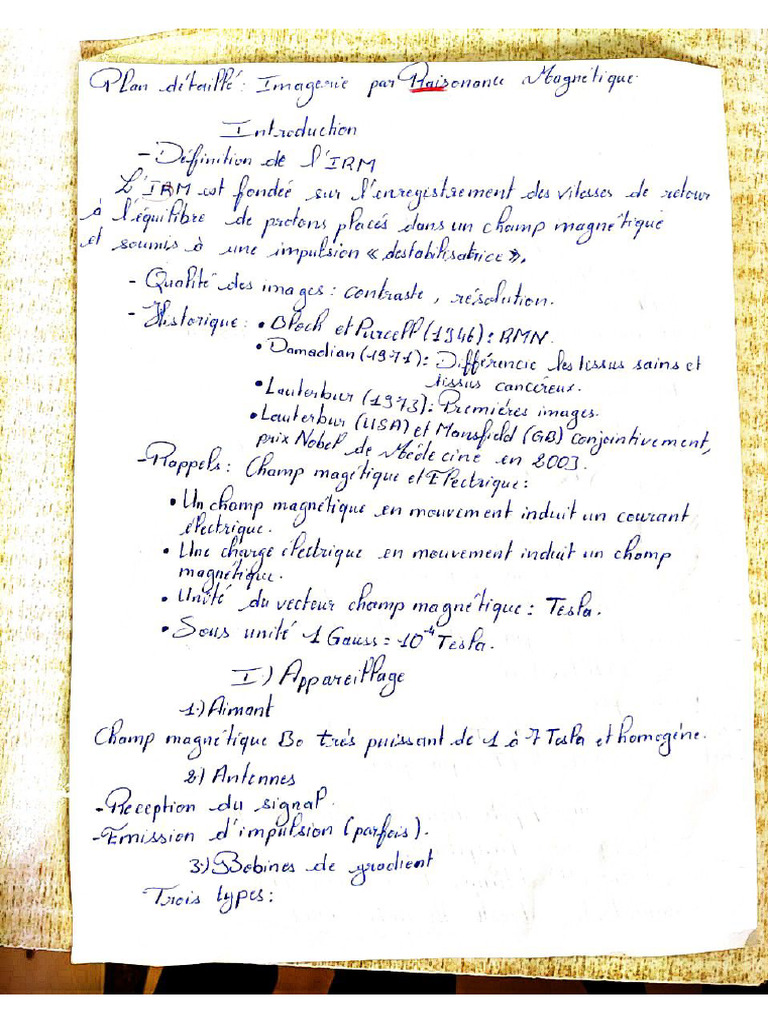 Plan détaillé : Imagerie par Raisonance Magnétique
Introduction
- Définition de l'IRM
L'IRM est fondée sur l'enregistrement des vitesses de retour
à l'équilibre de protons placés dans un champ magnétique
et soumis à une impulsion « destabilisatrice ».
- Qualité des images : contraste, résolution.
- Historique : • Bloch et Purcell (1946) : RMN.
• Damadian (1971) : Différencie les tissus sains et
tissus cancéreux.
• Lauterbur (1973) : Premières images.
• Lauterbur (USA) et Mansfield (GB) conjointivement,
prix Nobel de Médecine en 2003.
- Rappels : Champ magétique et Electrique :
• Un champ magnétique en mouvement induit un courant
électrique.
• Une charge électrique en mouvement induit un champ
magnétique.
• Unité du vecteur champ magnétique : Tesla.
• Sous unité 1 Gauss = 10⁻⁴ Tesla.
I.) Appareillage
1.) Aimant
Champ magnétique Bo très puissant de 1 à 7 Tesla et homogène.
2) Antennes
- Réception du signal.
- Emission d'impulsion (parfois).
3.) Bobines de gradient
Trois types :